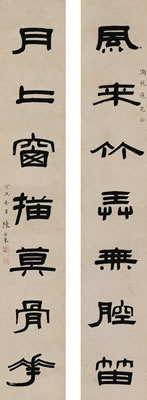 風來竹弄無腔笛
月上窗描莫骨花